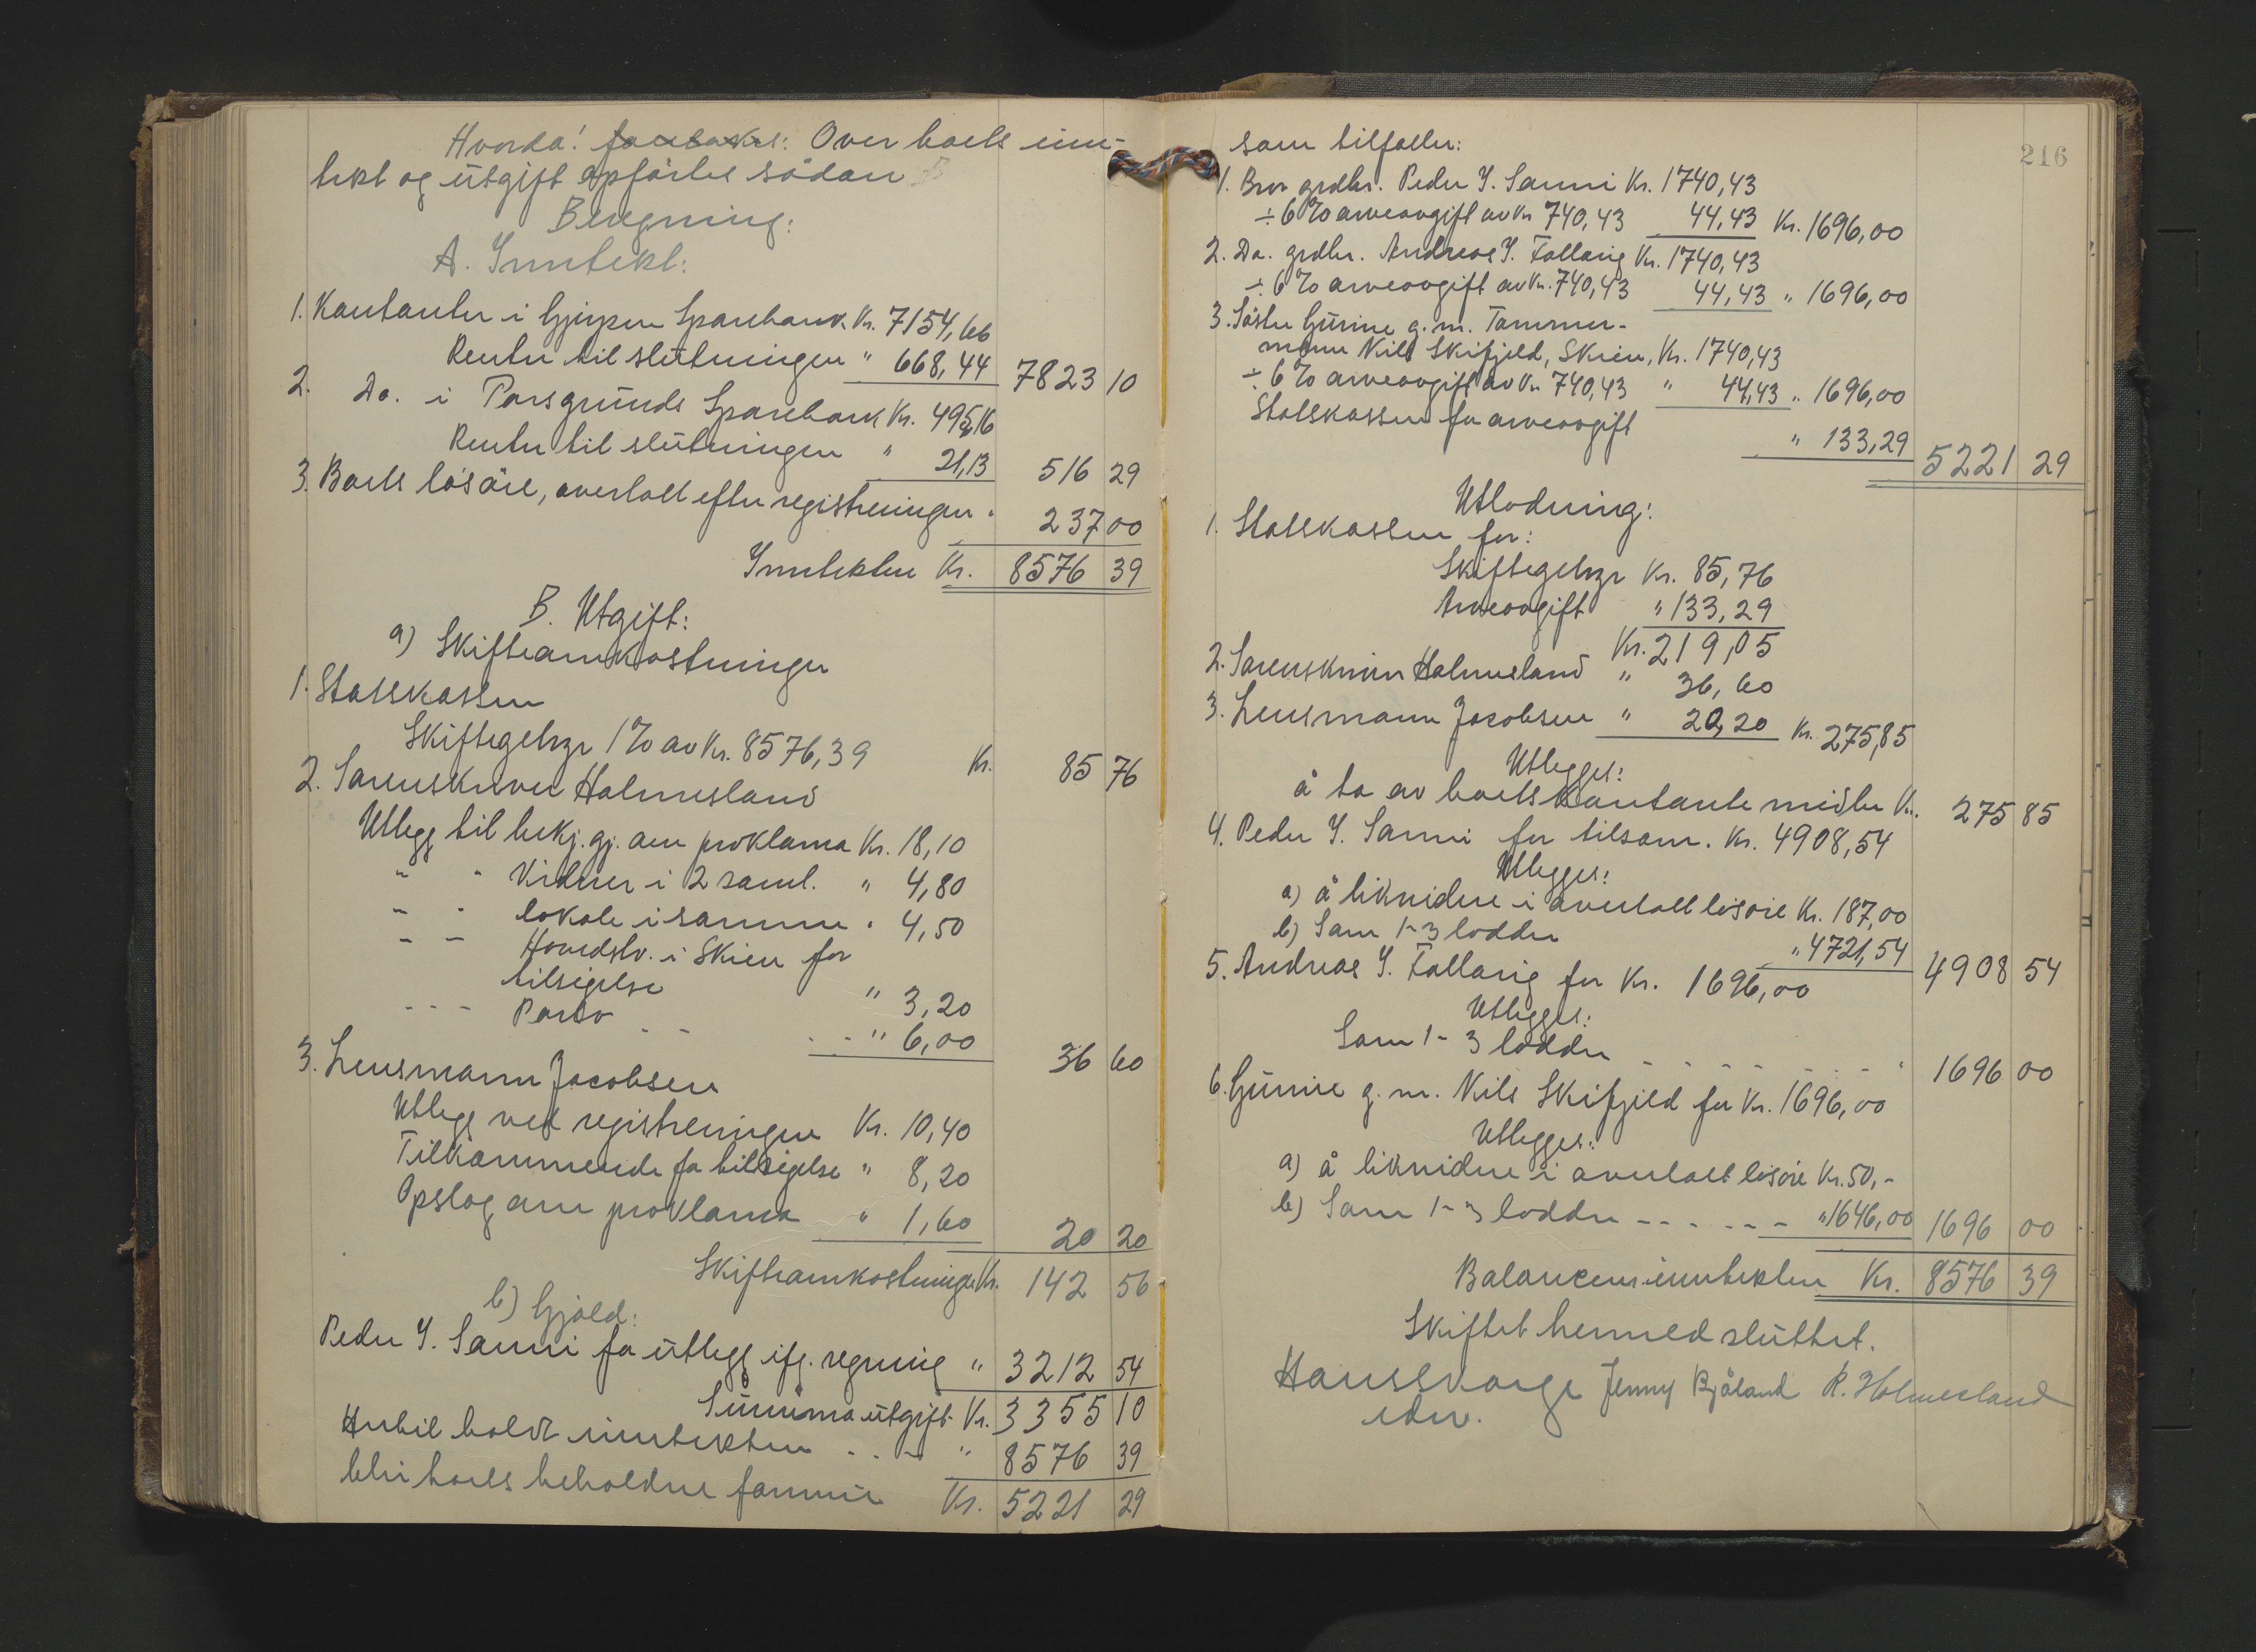 Hvorda! forelaagt: Over boets inn-
tekt og utgift opførtes sådan
Beregning:
A. Inntekt:
1. Kontanter i Gjerpen Sparebank Kr. 7154,66
Renter til slutningen " 668,44 7823 10
2. Do. i Porsgrunds Sparebank Kr. 495,16
Renter til slutningen " 21,13 516 29
3. Boets løsøre, overtatt efter registreringen " 237 00
Inntekten Kr. 8576 39
B. Utgift:
a) Skifteomkostninger
1. Statskassen
Skiftegebyr 1% av Kr. 8576,39 Kr. 85 76
2. Sorenskriver Holmesland
Utlegg til bekj.gj. om proklama Kr. 18,10
" " Vidner i 2 saml. " 4,80
" " lokale i samme " 4,50
" " Hovedslv. i Skien for
tilsigelse " 3,20
- - - Porto - - - - " 6,00 36 60
3. Lensmann Jacobsen
Utlegg ved registreringen Kr. 10,40
Tilkommende for tilsigelse " 8,20
Opslag om proklama " 1,60 20 20
Skifteomkostninger Kr. 142 56
b) Gjæld:
Peder J. Sanni for utlegg ifg. regning " 3212 54
Summa utgift Kr. 3355 10
Hertil holdt inntekten - - - " 8576 39
blir boets beholdne formue Kr. 5221 29
216
som tilfaller:
1. Bror grdbr. Peder J. Sanni Kr. 1740,43
÷ 6% arveavgift av Kr 740,43 44,43 Kr. 1696,00
2. Do. grdbr. Andreas J. Follaug Kr. 1740,43
÷ 6% arveavgift av Kr. 740,43 44,43 " 1696,00
3. Søster Gurine g.m. Tømmer-
mann Nils Skifjeld, Skien, Kr. 1740,43
÷ 6% arveavgift av Kr 740,43 " 44,43 " 1696,00
Statskassen for arveavgift " 133,29 5221 29
Utlodning:
1. Statskassen for:
Skiftegebyr Kr. 85,76
Arveavgift " 133,29
Kr. 219,05
2. Sorenskriver Holmesland " 36,60
3. Lensmann Jacobsen " 20,20 Kr. 275,85
Utlegges:
å ta av boets kontante midler Kr. 275 85
4. Peder J. Sanni for tilsam. Kr. 4908,54
Utlegges:
a) å likvidere i overtatt løsøre Kr. 187,00
b) Som 1-3 lodder " 4721,54 4908 54
5. Andreas J. Follaug for Kr. 1696,00
Utlegges:
Som 1-3 lodder - - - - - - - 1696 00
6. Gurine g.m. Nils Skifjeld for Kr. 1696,00
Utlegges:
a) å likvidere i overtatt løsøre Kr. 50,-
b) Som 1-3 lodder - - - - - - " 1646,00 1696 00
Balancerer inntekten Kr. 8576 39
Skiftet hermed sluttet.
Jenny Bjåland R. Holmesland
edsv.